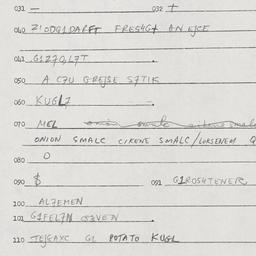 031 — 032 +
040 ZIODG1DARFT FRESHG+ AN EJCE
041 G1Z7QL7T
050 A C7U GREJSE S7TIK
060 KUGLZ
070 MEL
ONION SMALC CIKENE SMALC/LOKSENEM Q
080 O
090 $ 091 G1ROSHTENER
100 AL7EMEN
101 G1FEL7N
110 TEJGAXC G1 POTATO KUGL